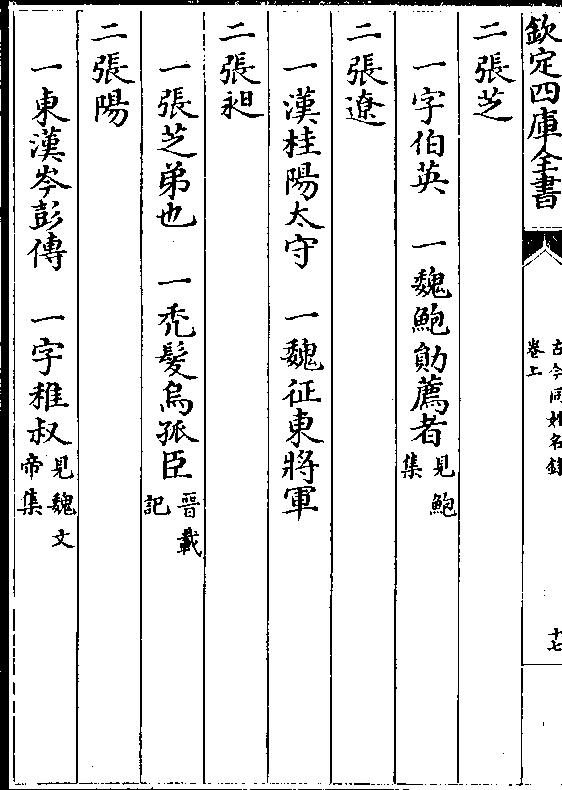 欽定四庫全書
古今同姓名錄
卷上
十七
二張芝
一字伯英　一魏鮑勛薦者見鮑集
二張遼
一漢桂陽太守　一魏征東將軍
二張昶
一張芝弟也　一禿髮烏孤臣晉載記
二張陽
一東漢岑彭傳　一字稚叔見魏文帝集